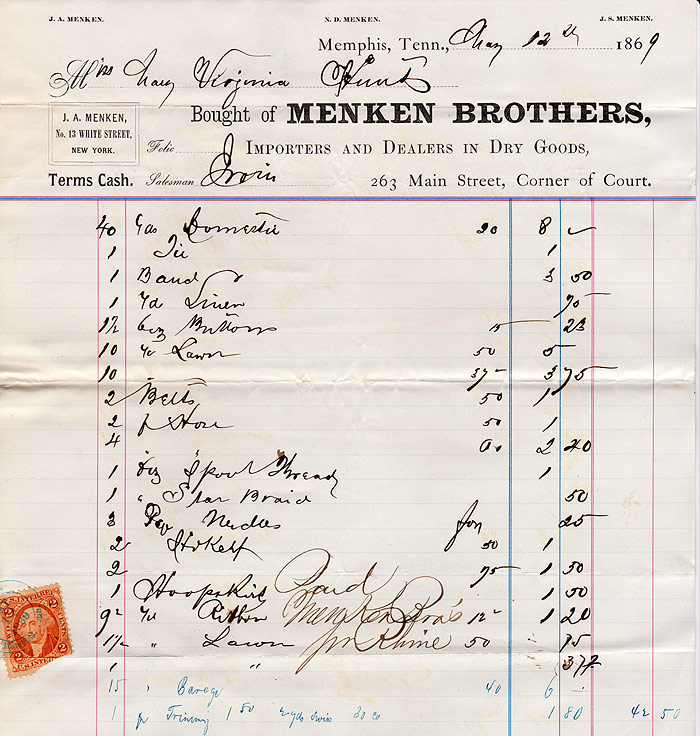 J. A. MENKEN. N. D. MENKEN. J. S. MENKEN.
Memphis, Tenn., May 12th 1869
Mrs Mary Virginia Hunt
Bought of MENKEN BROTHERS,
J. A. MENKEN,
No. 13 WHITE STREET,
NEW YORK.
Folio
IMPORTERS AND DEALERS IN DRY GOODS,
Terms Cash. Salesman Irvin 263 Main Street, Corner of Court.
40 Yds Domestic 20 8 —
1 1
1 Band 3 50
1 Yd Linen 75
1½ Doz Buttons 15 23
10 Yd Lawn 50 5
10 37 3 75
2 Belts 50 1
2 p Hose 50 1
4 60 2 40
1 Doz Spool Thread 1
1 " Star Braid 50
3 Needles for 25
2 Hdkf 50 1
2 75 1 50
1 Hoopskirt 1 50
Paid
9½ Yd Ribbon 12½ 1 20
Menken Bros
1½ " Lawn 50 75
pr Rhine
1 " 37½
15 " Barege 40 6 —
1 pr Triming 1 50 2 yds Swiss 30 co 1 80 42 50
2 2
2 2